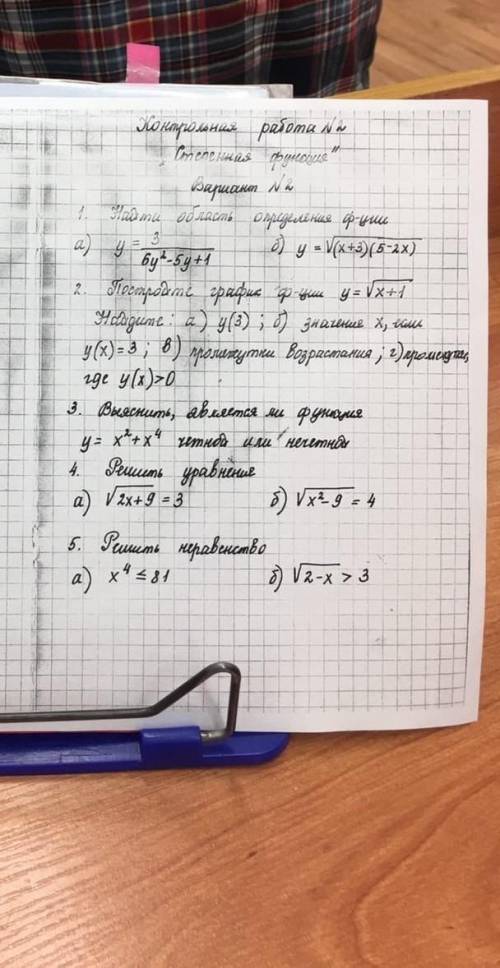 Контрольная работа №2
„Степенная функция"
Вариант №2
1. Найти область определения ф-ции
а) y = 3/(6y²-5y+1) б) y = √(x+3)(5-2x)
2. Постройте график ф-ции y = √x+1
Найдите: а) y(3); б) значение x, если
y(x)=3; в) промежутки возрастания; г) промежутки,
где y(x)>0
3. Выяснить, является ли функция
y = x²+x⁴ четной или нечетной
4. Решить уравнения
а) √2x+9 = 3 б) √x²-9 = 4
5. Решить неравенство
а) x⁴ ≤ 81 б) √2-x > 3